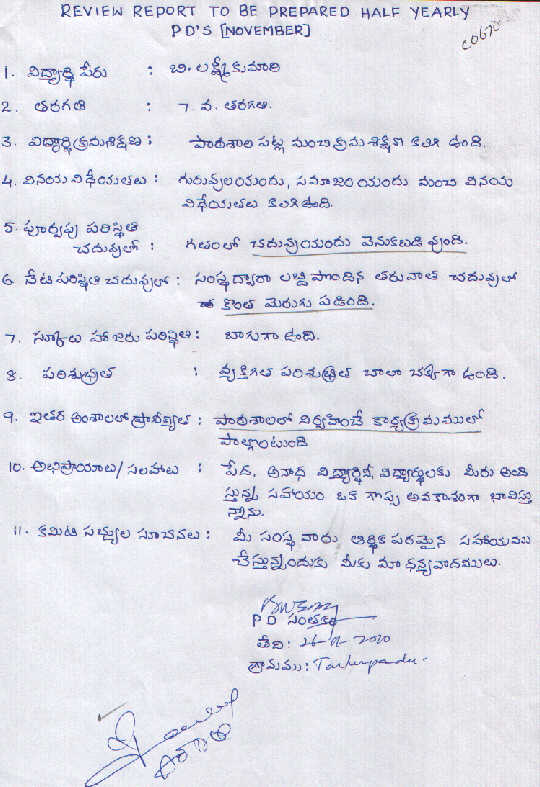 REVIEW REPORT TO BE PREPARED HALF YEARLY
PD'S [NOVEMBER]
1. విద్యార్థి పేరు : బి. లక్ష్మీ కుమారి
2. తరగతి : 7. వ. తరగతి.
3. విద్యార్థి క్రమశిక్షణ : పాఠశాల పట్ల మంచి క్రమశిక్షణ కలిగి ఉంది.
4. వినయ విధేయతలు : గురువులయందు, సమాజం యందు మంచి వినయ
విధేయతలు కలిగి ఉంది.
5. పూర్వపు పరిస్థితి
చదువులో : గతంలో చదువుయందు వెనుకబడి వుంది.
6. నేటి పరిస్థితి చదువులో : సంస్థద్వారా లబ్ది పొందిన తరువాత చదువులో
కొంత మెరుగు పడింది.
7. స్కూలు హాజరు పరిస్థితి : బాగుగా ఉంది.
8. పరిశుభ్రత : వ్యక్తిగత పరిశుభ్రత చాలా చక్కగా ఉంది.
9. ఇతర అంశాలలో ప్రావీణ్యత : పాఠశాలలో నిర్వహించే కార్యక్రమములో
పాల్గొంటుంది
10. అభిప్రాయాలు/సలహాలు : పేద, అనాధ విద్యార్థినీ, విద్యార్థులకు మీరు అంది
స్తున్న సహాయం ఒక గొప్ప అవకాశంగా భావిస్తు
న్నాను.
11. కమిటి సభ్యుల సూచనలు : మీ సంస్థ వారు, ఆర్థిక పరమైన సహాయము
చేస్తున్నందుకు మీకు మా ధన్యవాదములు.
PD సంతకం
తేది : 2020
గ్రామము :